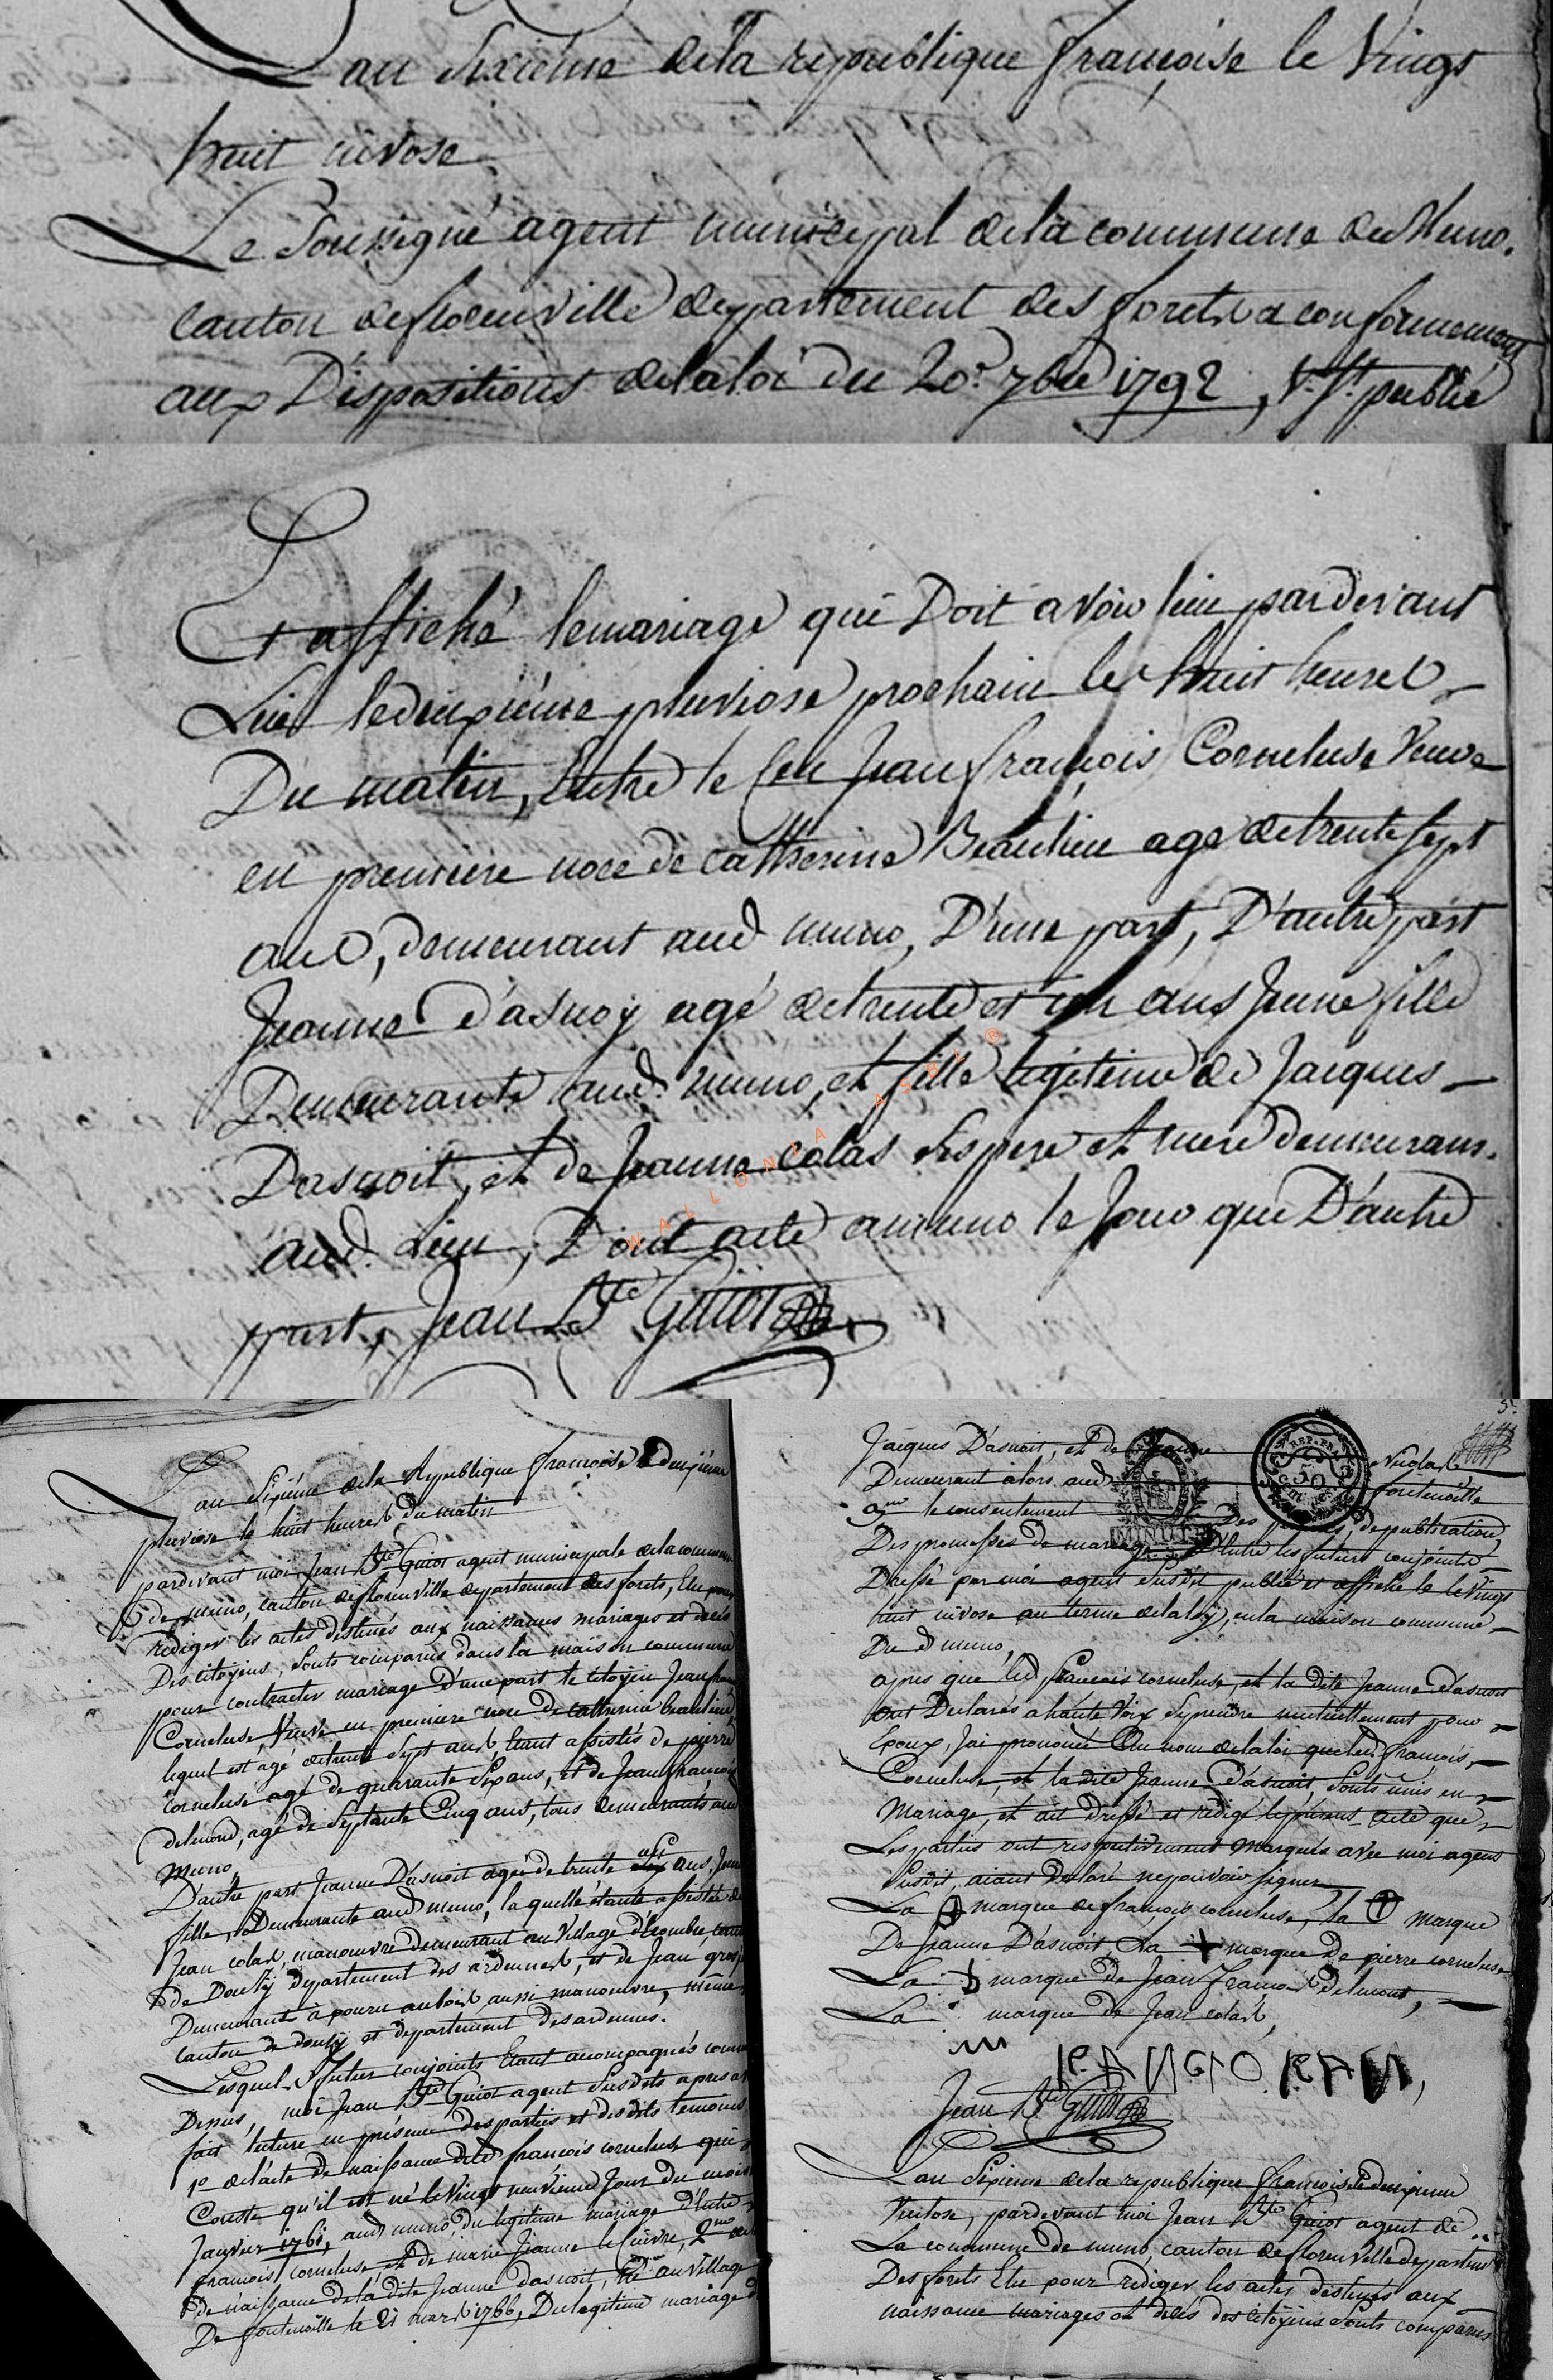 L'an Sixieme dela republique françoise le Vingt
huit nivose
Le Soussigné agent municipal dela commune de Muno.
canton de florenville departement des forets a conformement
aux Dispositions dela loi du 20e 7bre 1792, publié
Et affiché le mariage qui Doit avoir lieu pardevant
Lui le deuxième pluviose prochain les huit heures
Du matin, Entre le Cen Jean françois Corneluse Veuve
en premiere noce de Catherine Beaulieu agé de trente sept
ans, demeurant aud muno, D'une part, D'autre part
Jeanne D'asnoy agé de trente et un ans Jeune fille
Demeurante aud. muno, et fille legitime de Jacques
Dasnoit, et de Jeanne Colas Ses pere et mere demeurans.
aud. Lieu, Dont acte a muno le Jour que D'autre
part, Jean Bte Guiot
WALLONIA ASBL ®
L'an Sixieme dela Republique francoise le deuxieme
pluviose le huit heures du matin
pardevant moi Jean Bte Guiot agent municipale dela commune
de muno, canton de florenville departement des forets, Elu pour
rediger les actes destinés aux naissances mariages et decés
Des citoyens, Sonts comparus dans la maison commune
pour contracter mariage D'une part le citoyen Jean fran
Corneluse, Veuve en premiere noce de catherine beaulieu
lequel est agé de trente Sept ans Etant assistés de pierre
corneluse agé de quarante Six ans, et de Jean francois
delmond, agé de Septante Cinq ans, tous demeurants aud
Muno,
D'autre part Jeanne Dasnoit agée de trente ans, Jeune
fille, Demeurante aud muno, la quelle étante assistée de
Jean colas, manoeuvre demeurant au Village d'Escombre, canton
de Douzy departement des ardennes, et de Jean gros
Demeurant à pouru aubois aussi manoeuvre, même
canton de douzy et departement des ardennes.
Lesquels futur conjoints Etant acompagnés comme
Dessus, moi Jean Bte Guiot agent Susdits apres a
fait lecture en présence des parties et des dits temoins
1o del'acte de naissance dud francois corneluse qui
Conste qu'il est né le Vingt neuvieme Jour du mois
Janvier 1761, aud muno, du legitime mariage d'Entre
francois corneluse, et de marie Jeanne le Cuivre, 2mo
de naissance de la dite Jeanne dasnoit, né au Village
De fontenoille le 21 mars 1766, Du legitime mariage d
Jacques D'asnoit, et de Jeanne Nicolas
Demeurant alors aud fontenoille
3mo le consentement Des de publication
Des promesses de mariage D'Entre les futurs conjoints
Dressé par moi agent Susdit publié et affiché le Vingt
huit nivose au terme dela loy, en la maison commune
Du d muno,
apres que led francois corneluse, et la dite Jeanne Dasnoit
ont Declarés a haute Voix Se prendre mutuellement pour
Epoux, J'ai prononcé Au nom dela loi que led françois,
Corneluse, et la dite Jeanne D'asnoit, Sonts unis en
Mariage, et ait dressé et redigé le present acte que
Les parties ont respectivement Marqués avec moi agent
Susdit, aiant declaré ne pouvoir signer
La marque de françois corneluse, la marque
De Jeanne D'asnoit, La + marque De pierre corneluse
La marque de Jean francois Delmont,
La marque de Jean colas,
Jean Bte Guiot
L'an Sixieme dela republique francoise le deuxieme
Ventose, pardevant moi Jean Bte Guiot agent de
La commune de muno, canton de florenville departement
Des forets Elu pour rediger les actes destinés aux
naissance mariages et decés des citoyens Sonts comparus
REP. FRA
50
MINUTE